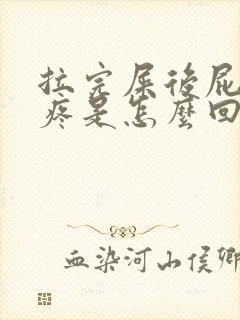 拉完屎後屁
疼是怎麼回
血染河山侯卿